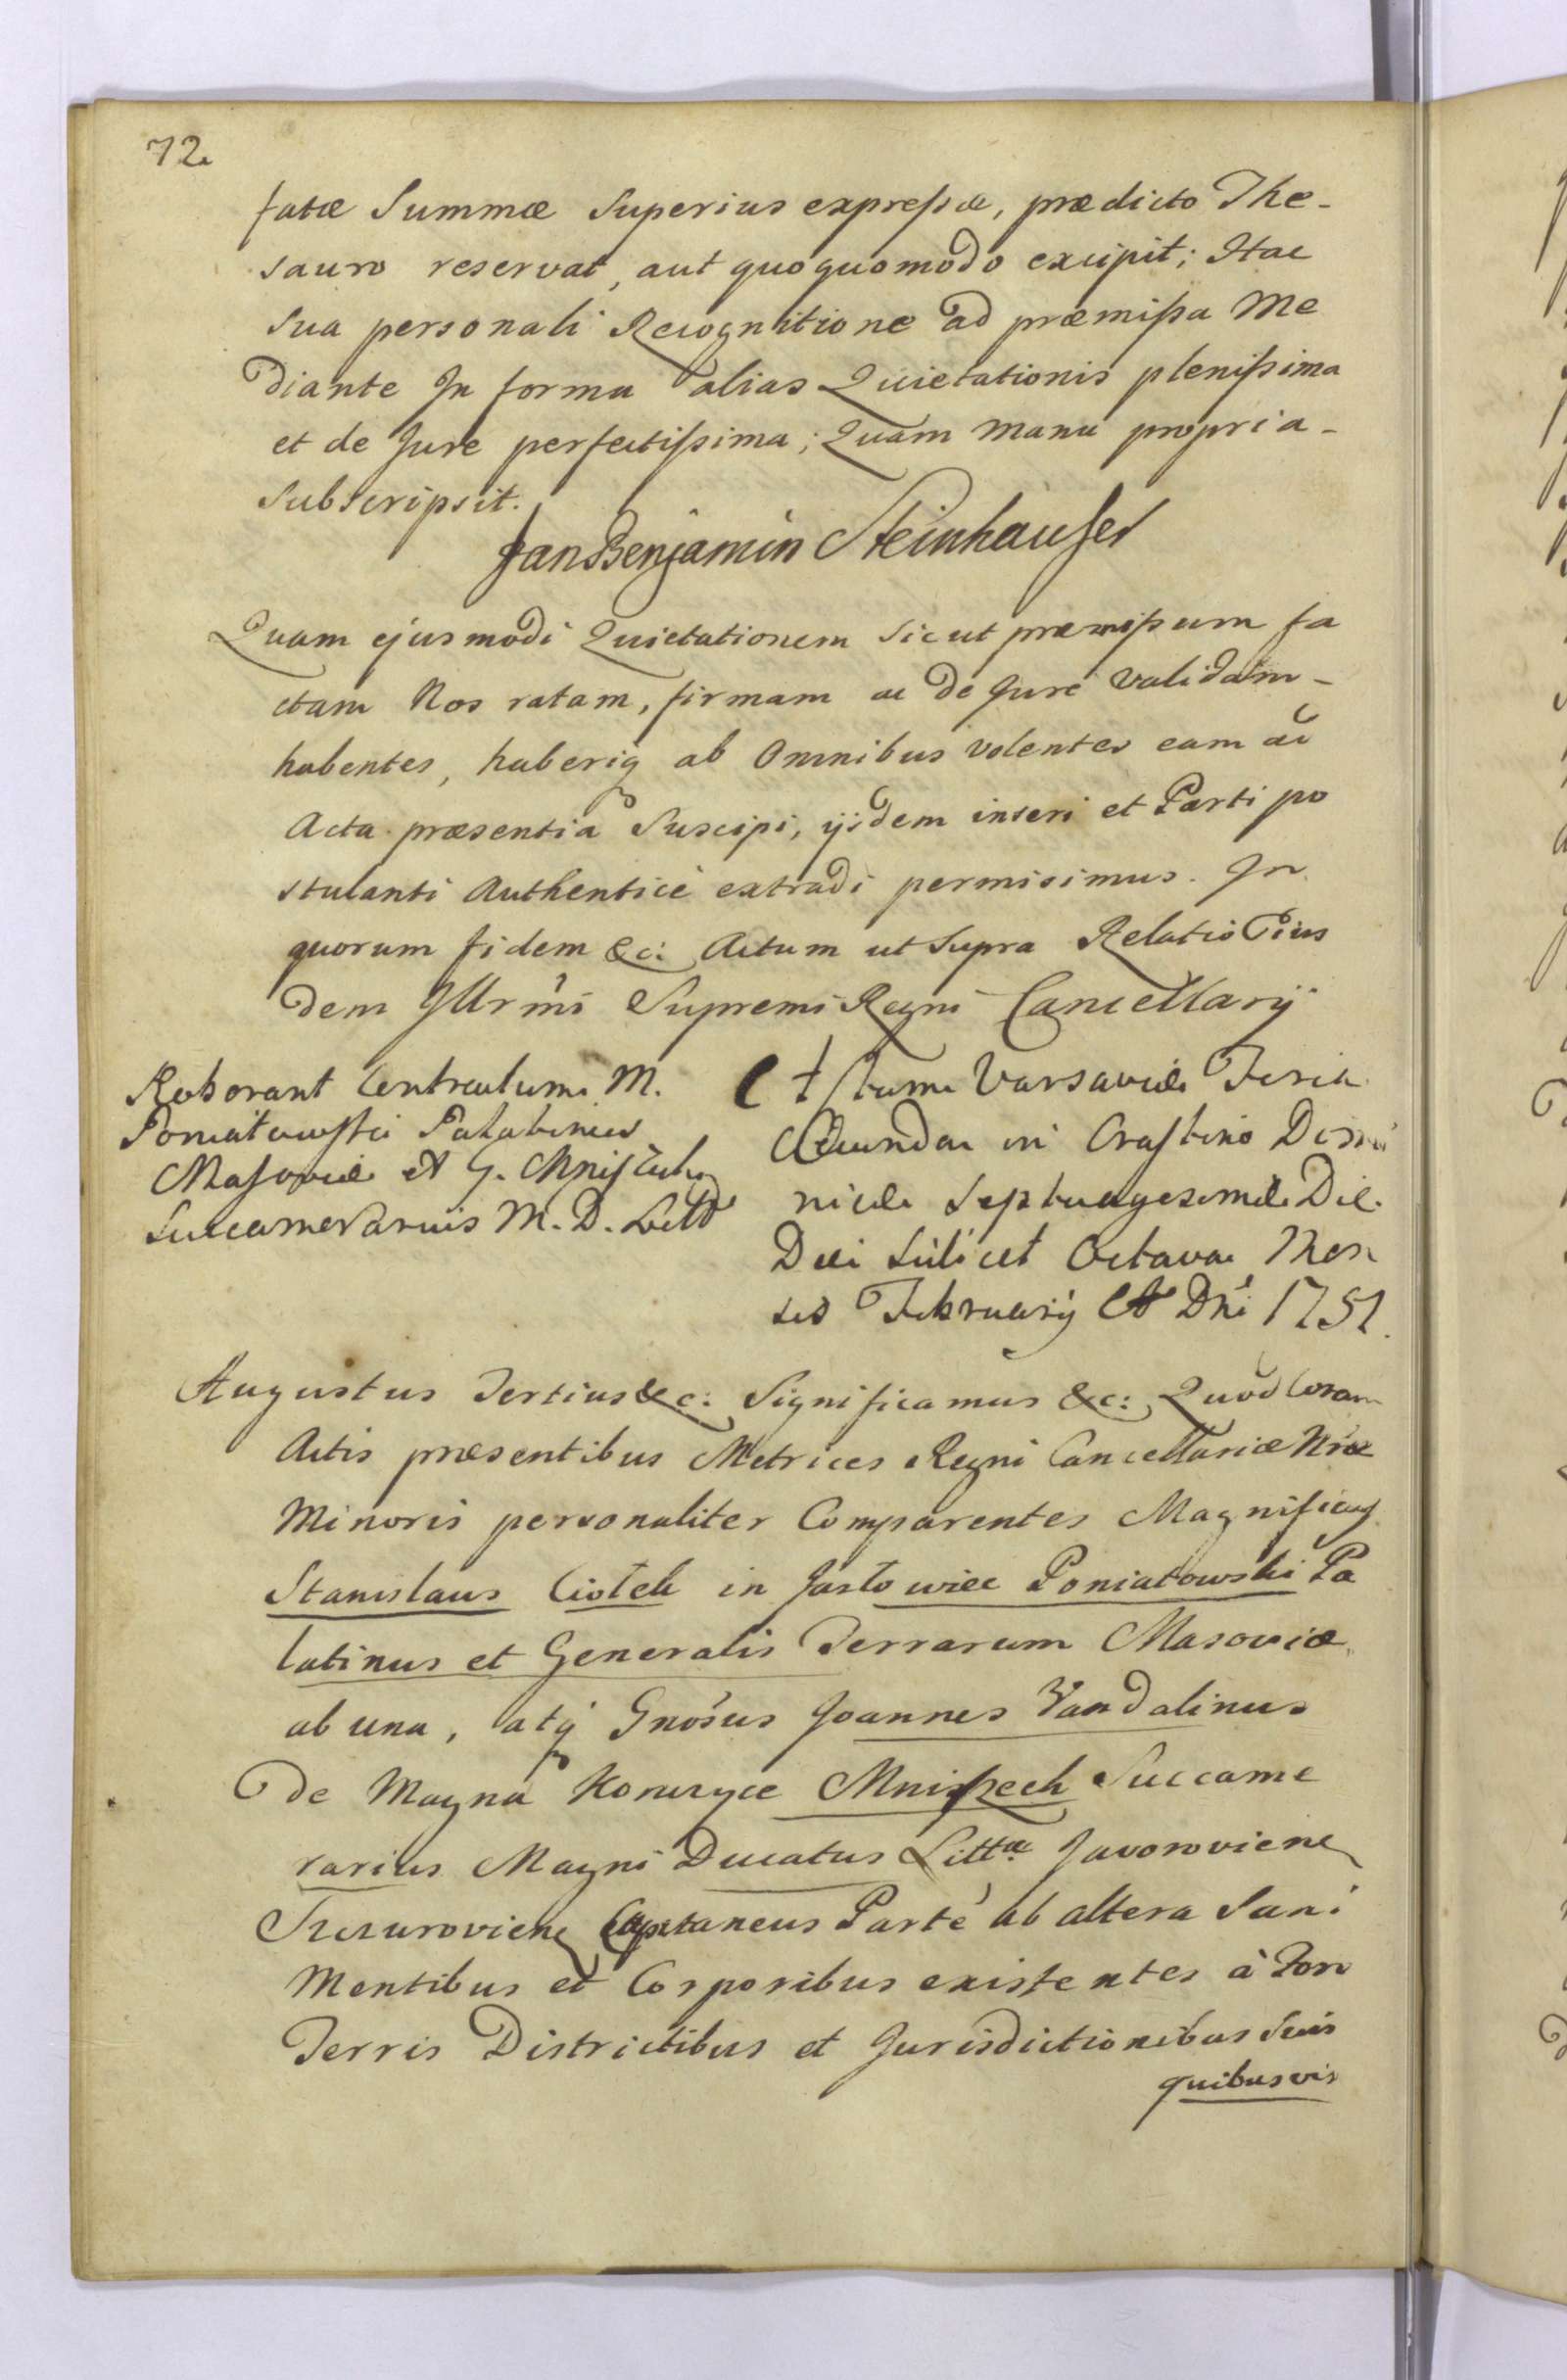 72.
fatæ Summæ Superius expressæ, prædicto The-
sauro reservat, aut quoquomodo excipit; Hac
Sua personali Recognitione ad præmissa Me
diante In forma alias Quietationis plenissima
et de Jure perfectissima; Quam manu propria-
Subscripsit.
Jan Benjamin Steinhauser
Quam ejusmodi Quietationem Sicut præmissum fa
ctam Nos ratam, firmam ac de Jure validam-
habentes, haberiq ab Omnibus volentes eam ad
Acta præsentia Suscipi, ijsdem inseri et Parti po
stulanti Authenticè extradi permisimus. In
quorum fidem &c: Actum ut Supra Relatio Eius
dem Illrmi Supremi Regni Cancellarij
Roborant Contractum M.
Poniatowski Palatinus
Masoviæ et G. Mniszech
Succamerarius M. D. Litt
Actum Varsaviæ Feria
Secunda in Crastino Domi
nicæ Septuagesimæ Die
Dei Scilicet Octava Men
sis Februarij A Dni 1751.
Augustus Tertius &c: Significamus &c: Quod Coram
Actis præsentibus Metrices Regni Cancellariæ Nræ
Minoris personaliter Comparentes Magnificus
Stanislaus Ciołek in Jasłowiec Poniatowski Pa
latinus et Generalis Terrarum Masoviæ
ab una, atq Gnosus Joannes Vandalinus
de Magna Konczyce Mniszech Succame
rarius Magni Ducatus Littæ Javoroviens
Capitaneus Parte ab altera Sani
Mentibus et Corporibus existentes à Foro
Terris Districtibus et Jurisdictionibus Suis
quibusvis